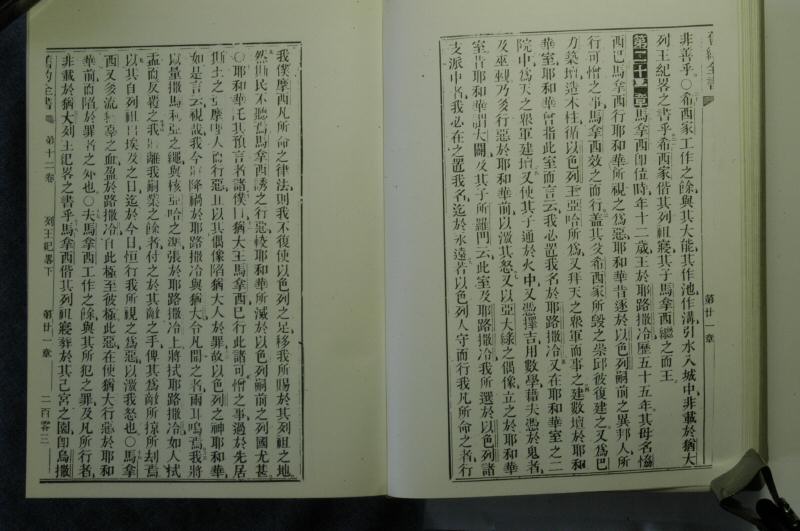 舊約全書
第廿一章
非善乎○希西家工作之餘與其大能其作池作溝引水入城中非載於猶大
列王紀畧之書乎希西家偕其列祖寢其子馬拿西繼之而王
第二十一章 馬拿西即位時年十二歲王於耶路撒冷歷五十五年其母名協
西巴馬拿西行耶和華所視之為惡耶和華昔逐於以色列嗣前之異邦人所
行可憎之事馬拿西效之而行蓋其父希西家所毀之崇邱彼復建之又為巴
力築壇造木柱循以色列王亞哈所為又拜天之眾軍而事之建數壇於耶和
華室耶和華曾指此室而言云我必置我名於耶路撒冷又在耶和華室之二
院中為天之眾軍建壇又使其子通於火中又憑擇吉用數學藉夫憑於鬼者
及巫覡乃多行惡於耶和華前以激其怒又以亞大綠之偶像立之於耶和華
室昔耶和華謂大闢及其子所羅門云此室及耶路撒冷我所選於以色列諸
支派中者我必在之置我名迄於永遠若以色列人守而行我凡所命之者行
我僕摩西凡所命之律法則我不復使以色列之足移我所賜於其列祖之地
然斯民不聽馬拿西誘之行惡較耶和華所滅於以色列嗣前之列國尤甚
○耶和華托其預言者諸僕曰猶大王馬拿西已行此諸可憎之事過於先居
斯土之亞摩哩人而行惡且以其偶像陷猶大人於罪故以色列之神耶和華
如是言云視哉我今將降禍於耶路撒冷與猶大令凡聞之者兩耳鳴焉我將
以量撒馬利亞之繩與核亞哈之準張於耶路撒冷上將拭耶路撒冷如人拭
盂而反覆之我將離我嗣業之餘者付之於其敵之手俾其為敵所掠所刧焉
以其自列祖出埃及之日迄於今日恒行我所視之為惡以激我怒也○馬拿
西又多流無辜之血盈於路撒冷自此極至彼極此惡在使猶大行惡於耶和
華前而陷於罪者之外也○夫馬拿西工作之餘與其所犯之罪及凡所行者
非載於猶大列王紀畧之書乎馬拿西偕其列祖寢葬於其己宮之園即烏撒
舊約全書 第十二卷 列王紀畧下 第廿一章 二百零三